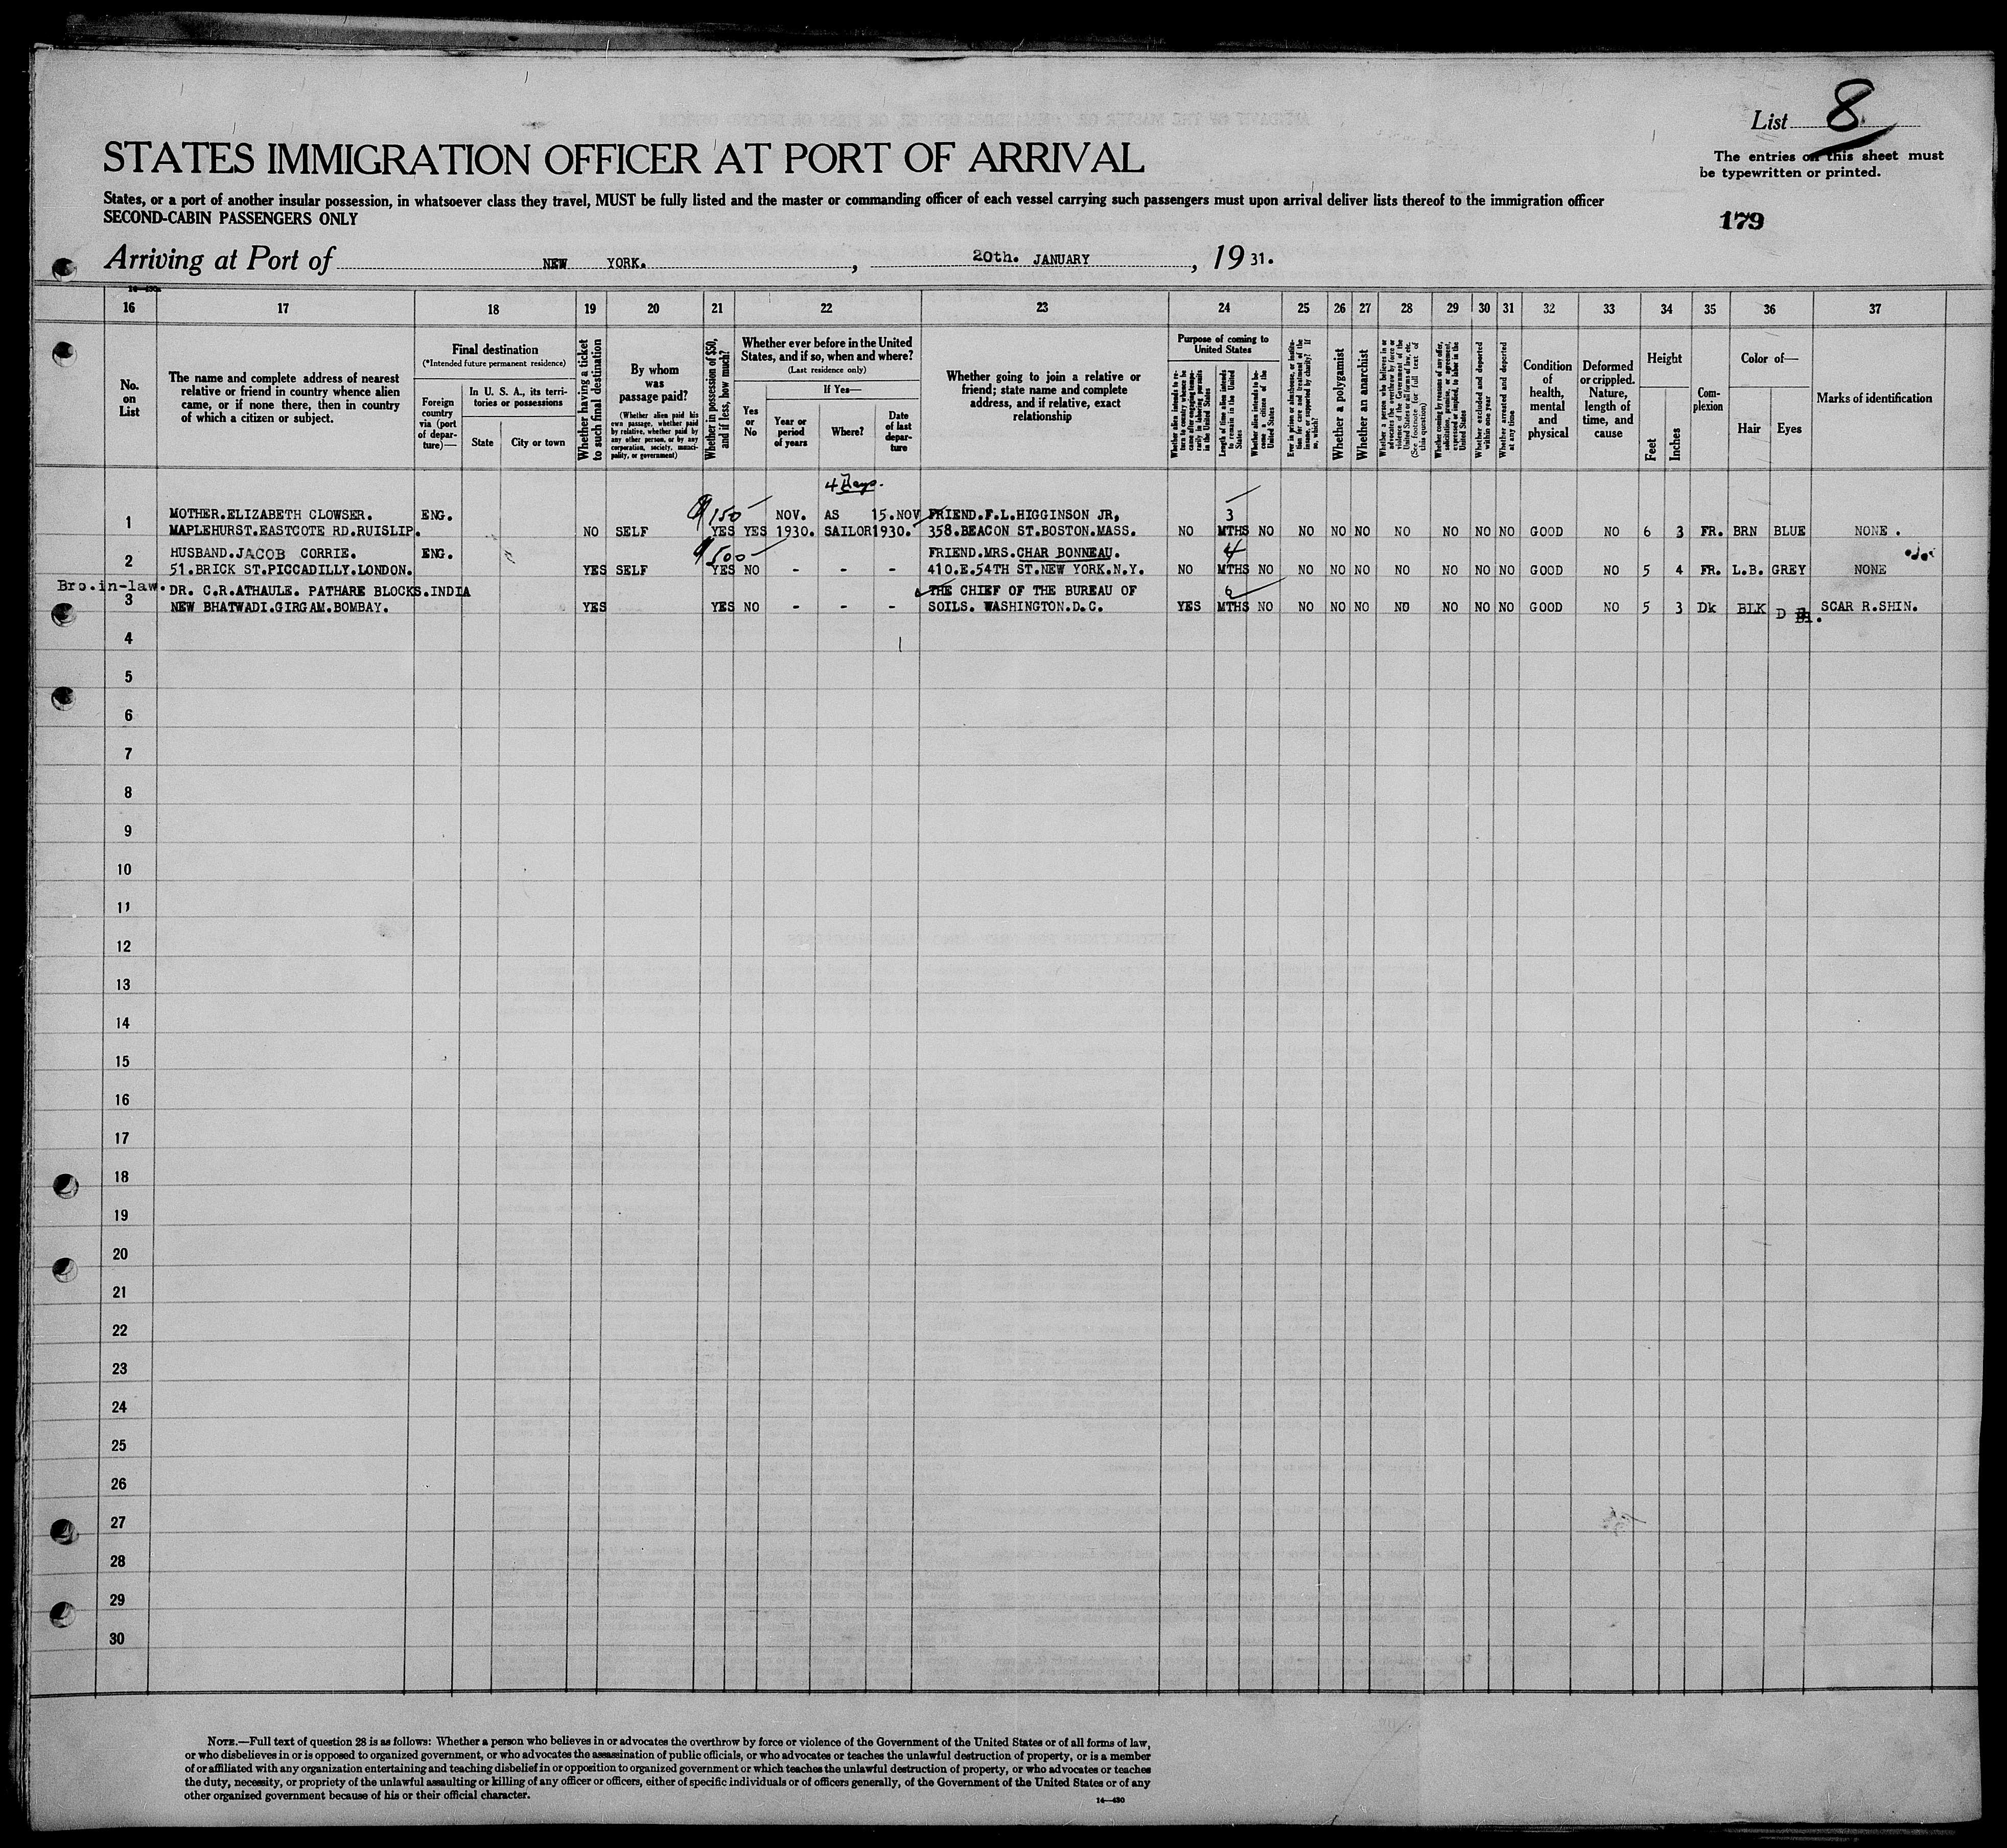 List 8
STATES IMMIGRATION OFFICER AT PORT OF ARRIVAL
The entries on this sheet must
be typewritten or printed.
States, or a port of another insular possession, in whatsoever class they travel, MUST be fully listed and the master or commanding officer of each vessel carrying such passengers must upon arrival deliver lists thereof to the immigration officer
SECOND-CABIN PASSENGERS ONLY
179
Arriving at Port of NEW YORK. , 20th. JANUARY , 19 31.
16 17 18 19 20 21 22 23 24 25 26 27 28 29 30 31 32 33 34 35 36 37
No. on List
The name and complete address of nearest relative or friend in country whence alien came, or if none there, then in country of which a citizen or subject.
Final destination
(*Intended future permanent residence)
Foreign country via (port of departure)—
In U. S. A., its territories or possessions
State
City or town
Whether having a ticket to such final destination
By whom was passage paid?
(Whether alien paid his own passage, whether paid by relative, whether paid by any other person, or by any corporation, society, municipality, or government)
Whether in possession of $50, and if less, how much?
Whether ever before in the United States, and if so, when and where?
(Last residence only)
Yes or No
If Yes—
Year or period of years
Where?
Date of last departure
Whether going to join a relative or friend; state name and complete address, and if relative, exact relationship
Purpose of coming to United States
Whether alien intends to return to country whence he came after engaging temporarily in laboring pursuits in the United States
Length of time alien intends to remain in the United States
Whether alien intends to become a citizen of the United States
Ever in prison or almshouse, or institution for care and treatment of the insane, or supported by charity? If so, which?
Whether a polygamist
Whether an anarchist
Whether a person who believes in or advocates the overthrow by force or violence of the Government of the United States or all forms of law, etc. (See footnote for full text of this question)
Whether coming by reasons of any offer, solicitation, promise, or agreement, expressed or implied, to labor in the United States
Whether excluded and deported within one year
Whether arrested and deported at any time
Condition of health, mental and physical
Deformed or crippled. Nature, length of time, and cause
Height
Feet
Inches
Complexion
Color of—
Hair
Eyes
Marks of identification
4 Days.
MOTHER.ELIZABETH CLOWSER. ENG. $150 NOV. AS 15.NOV FRIEND.F.L.HIGGINSON JR, 3
1 MAPLEHURST.EASTCOTE RD.RUISLIP. NO SELF YES YES 1930. SAILOR 1930. 358.BEACON ST.BOSTON.MASS. NO MTHS NO NO NO NO NO NO NO NO GOOD NO 6 3 FR. BRN BLUE NONE .
HUSBAND.JACOB CORRIE. ENG. $500 FRIEND.MRS.CHAR BONNEAU. 4
2 51.BRICK ST.PICCADILLY.LONDON. YES SELF YES NO - - - 410.E.54TH ST.NEW YORK.N.Y. NO MTHS NO NO NO NO NO NO NO NO GOOD NO 5 4 FR. L.B. GREY NONE
Bro.in-law. DR. C.R.ATHAULE. PATHARE BLOCKS.INDIA THE CHIEF OF THE BUREAU OF 6
3 NEW BHATWADI.GIRGAM.BOMBAY. YES YES NO - - - SOILS. WASHINGTON.D.C. YES MTHS NO NO NO NO NO NO NO NO GOOD NO 5 3 Dk BLK D Bl. SCAR R.SHIN.
4
5
6
7
8
9
10
11
12
13
14
15
16
17
18
19
20
21
22
23
24
25
26
27
28
29
30
NOTE.—Full text of question 28 is as follows: Whether a person who believes in or advocates the overthrow by force or violence of the Government of the United States or of all forms of law,
or who disbelieves in or is opposed to organized government, or who advocates the assassination of public officials, or who advocates or teaches the unlawful destruction of property, or is a member
of or affiliated with any organization entertaining and teaching disbelief in or opposition to organized government or which teaches the unlawful destruction of property, or who advocates or teaches
the duty, necessity, or propriety of the unlawful assaulting or killing of any officer or officers, either of specific individuals or of officers generally, of the Government of the United States or of any
other organized government because of his or their official character.
14—430